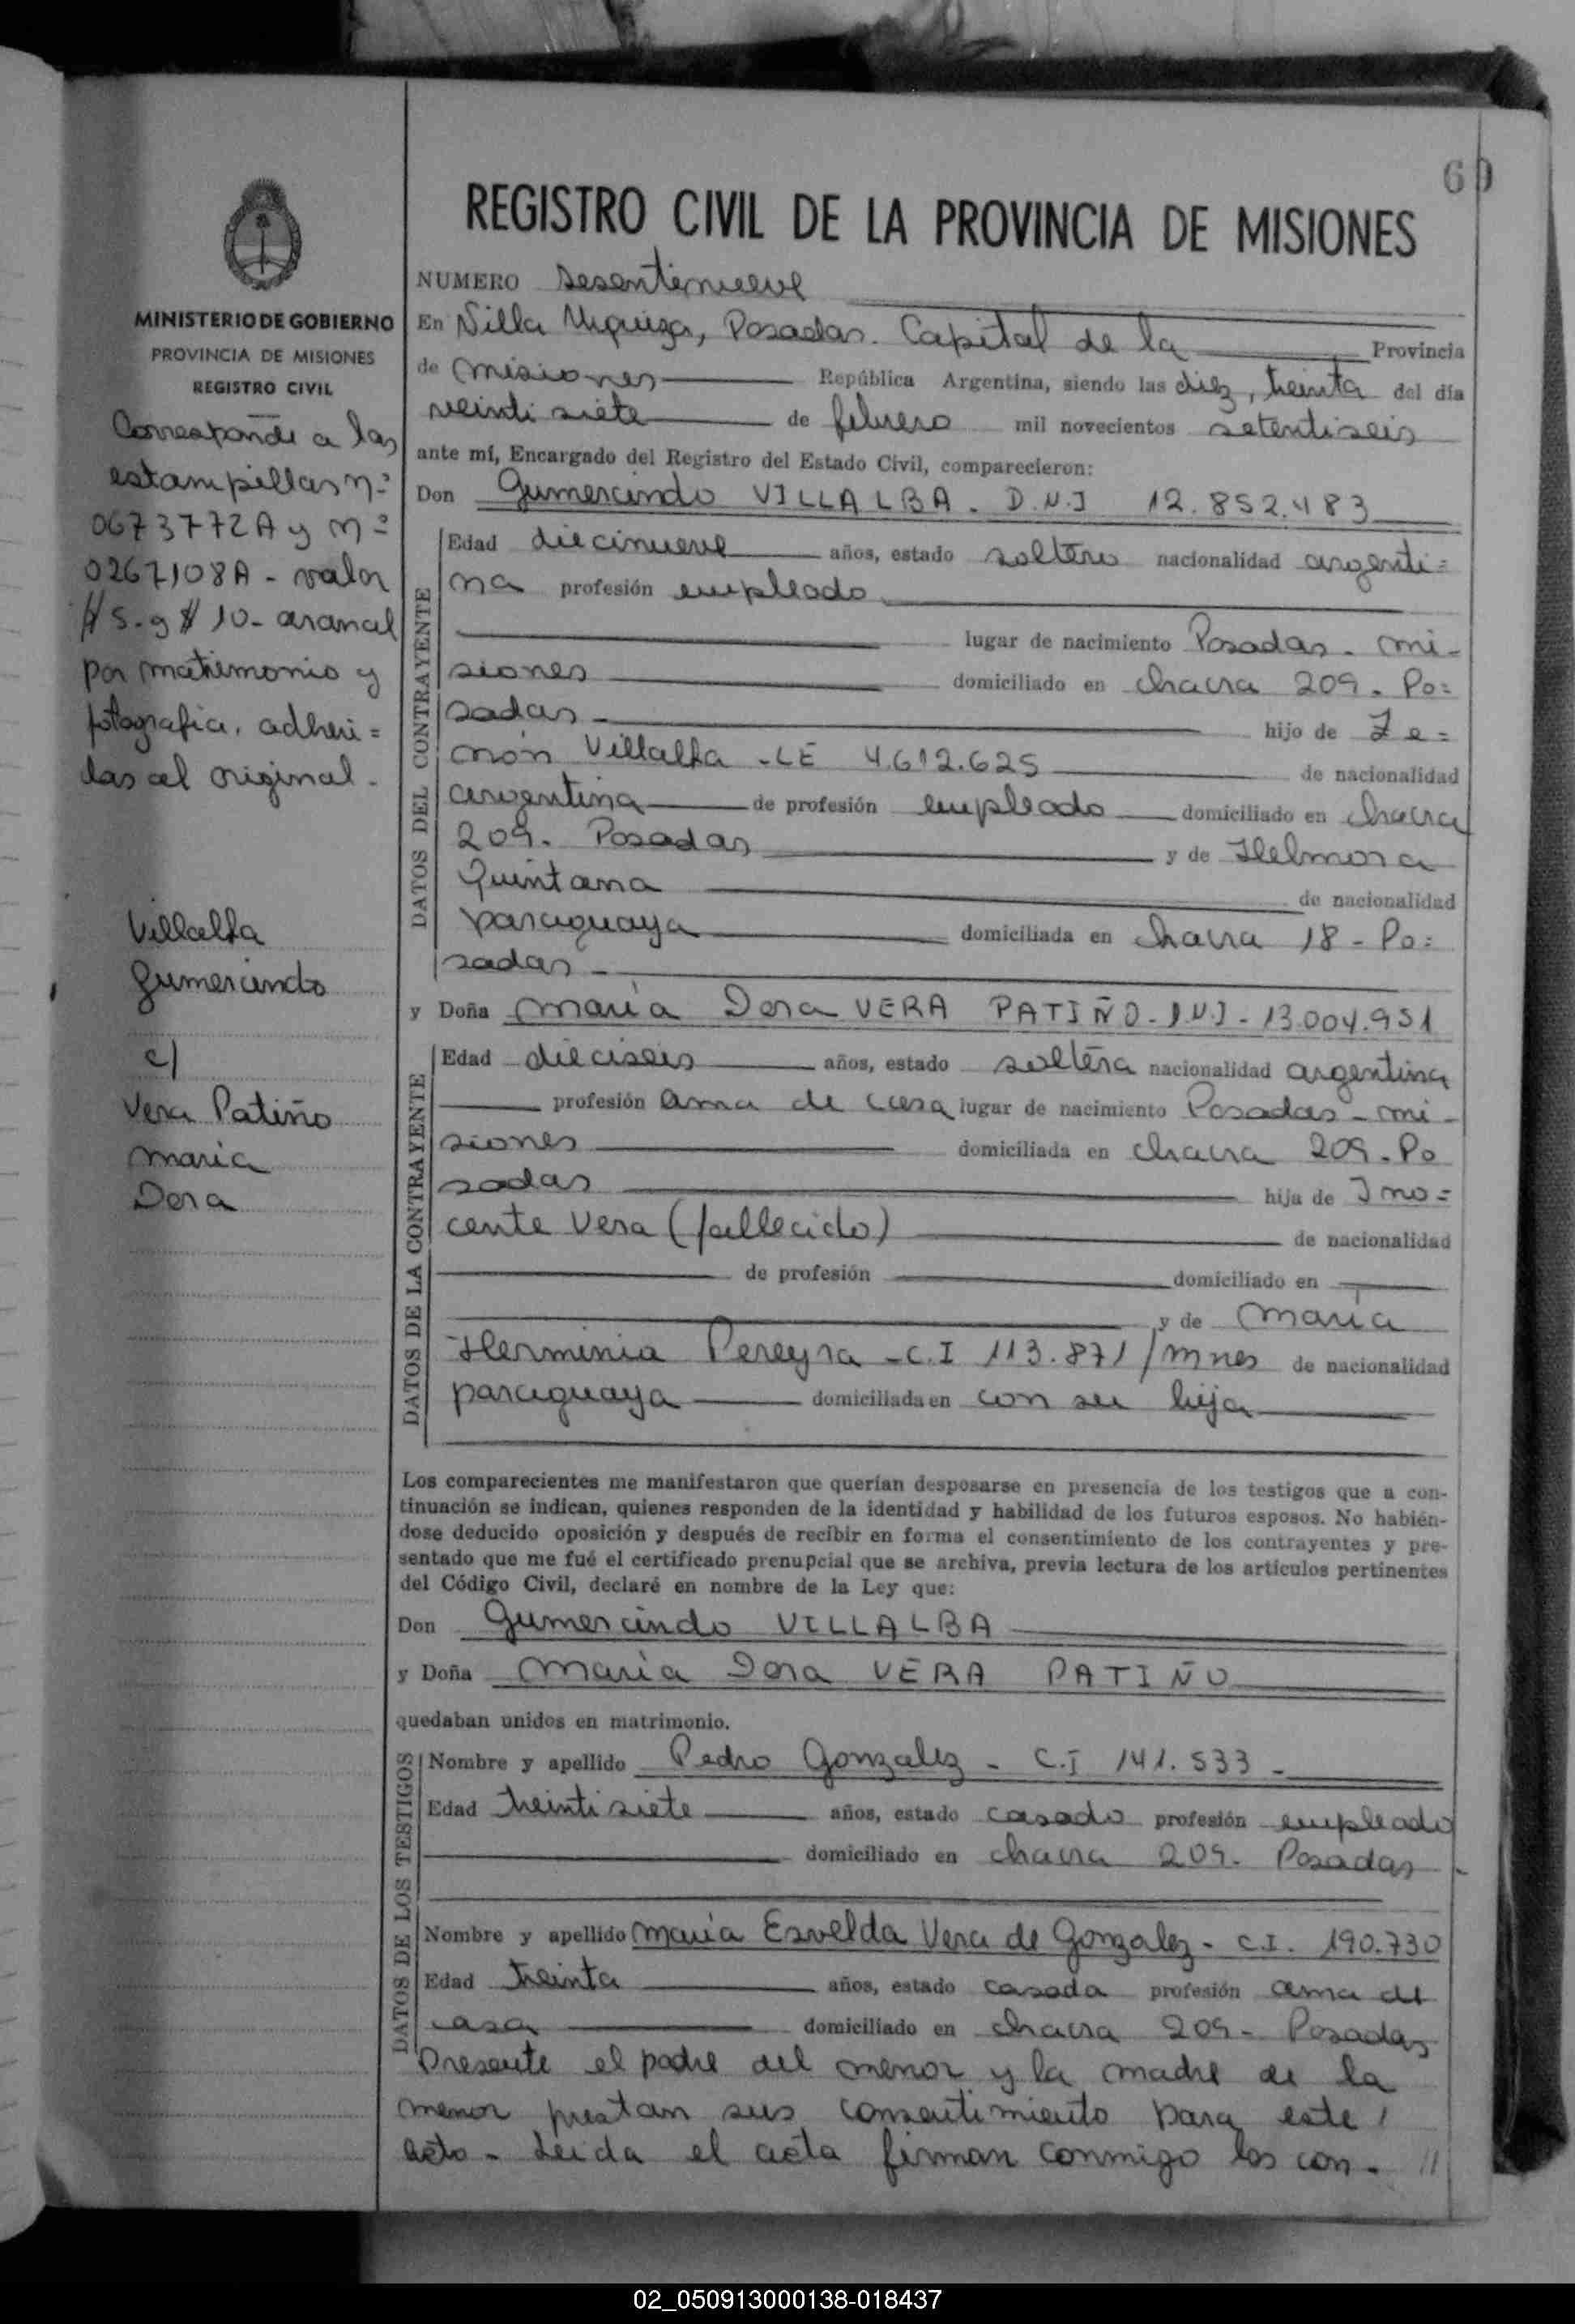 60
REGISTRO CIVIL DE LA PROVINCIA DE MISIONES
MINISTERIO DE GOBIERNO
PROVINCIA DE MISIONES
REGISTRO CIVIL
Corresponde a las
estampillas nº
0673772A y nº
0267108A - valor
$ 5.- y $ 10- arancel
por matrimonio y
fotografia, adheri=
das al original -
Villalba
Gumercindo
c/
Vera Patiño
María
Dora
NUMERO Sesentinueve
En Villa Urquiza, Posadas. Capital de la Provincia
de Misiones República Argentina, siendo las diez, treinta del día
veintisiete de febrero mil novecientos setentiseis
ante mí, Encargado del Registro del Estado Civil, comparecieron:
Don Gumercindo VILLALBA. D.N.I 12.852.483
DATOS DEL CONTRAYENTE
Edad diecinueve años, estado soltero nacionalidad argenti=
na profesión empleado
lugar de nacimiento Posadas - Mi-
siones domiciliado en chacra 209. Po=
sadas - hijo de Ze=
nón Villalba - LE 4.612.625 de nacionalidad
argentina de profesión empleado domiciliado en chacra
209. Posadas y de Helmora
Quintana de nacionalidad
paraguaya domiciliada en chacra 18 - Po=
sadas -
y Doña María Dora VERA PATIÑO - D.N.I - 13.004.951
DATOS DE LA CONTRAYENTE
Edad dieciseis años, estado soltera nacionalidad argentina
profesión ama de casa lugar de nacimiento Posadas - Mi-
siones domiciliada en chacra 209. Po
sadas hija de Ino=
cente Vera (fallecido) de nacionalidad
de profesión domiciliado en
y de María
Herminia Pereyra - C.I 113.871/Mnes de nacionalidad
paraguaya domiciliada en con su hija
Los comparecientes me manifestaron que querían desposarse en presencia de los testigos que a con-
tinuación se indican, quienes responden de la identidad y habilidad de los futuros esposos. No habién-
dose deducido oposición y después de recibir en forma el consentimiento de los contrayentes y pre-
sentado que me fué el certificado prenupcial que se archiva, previa lectura de los artículos pertinentes
del Código Civil, declaré en nombre de la Ley que:
Don Gumercindo VILLALBA
y Doña María Dora VERA PATIÑO
quedaban unidos en matrimonio.
DATOS DE LOS TESTIGOS
Nombre y apellido Pedro Gonzalez - C.I 141.533 -
Edad treintisiete años, estado casado profesión empleado
domiciliado en chacra 209. Posadas -
Nombre y apellido María Esvelda Vera de Gonzalez - C.I. 190.730
Edad treinta años, estado casada profesión ama de
casa domiciliado en chacra 209 - Posadas
Presente el padre del menor y la madre de la
menor prestan sus consentimiento para este
acto - Leida el acta firman conmigo los con- //
02_050913000138-018437